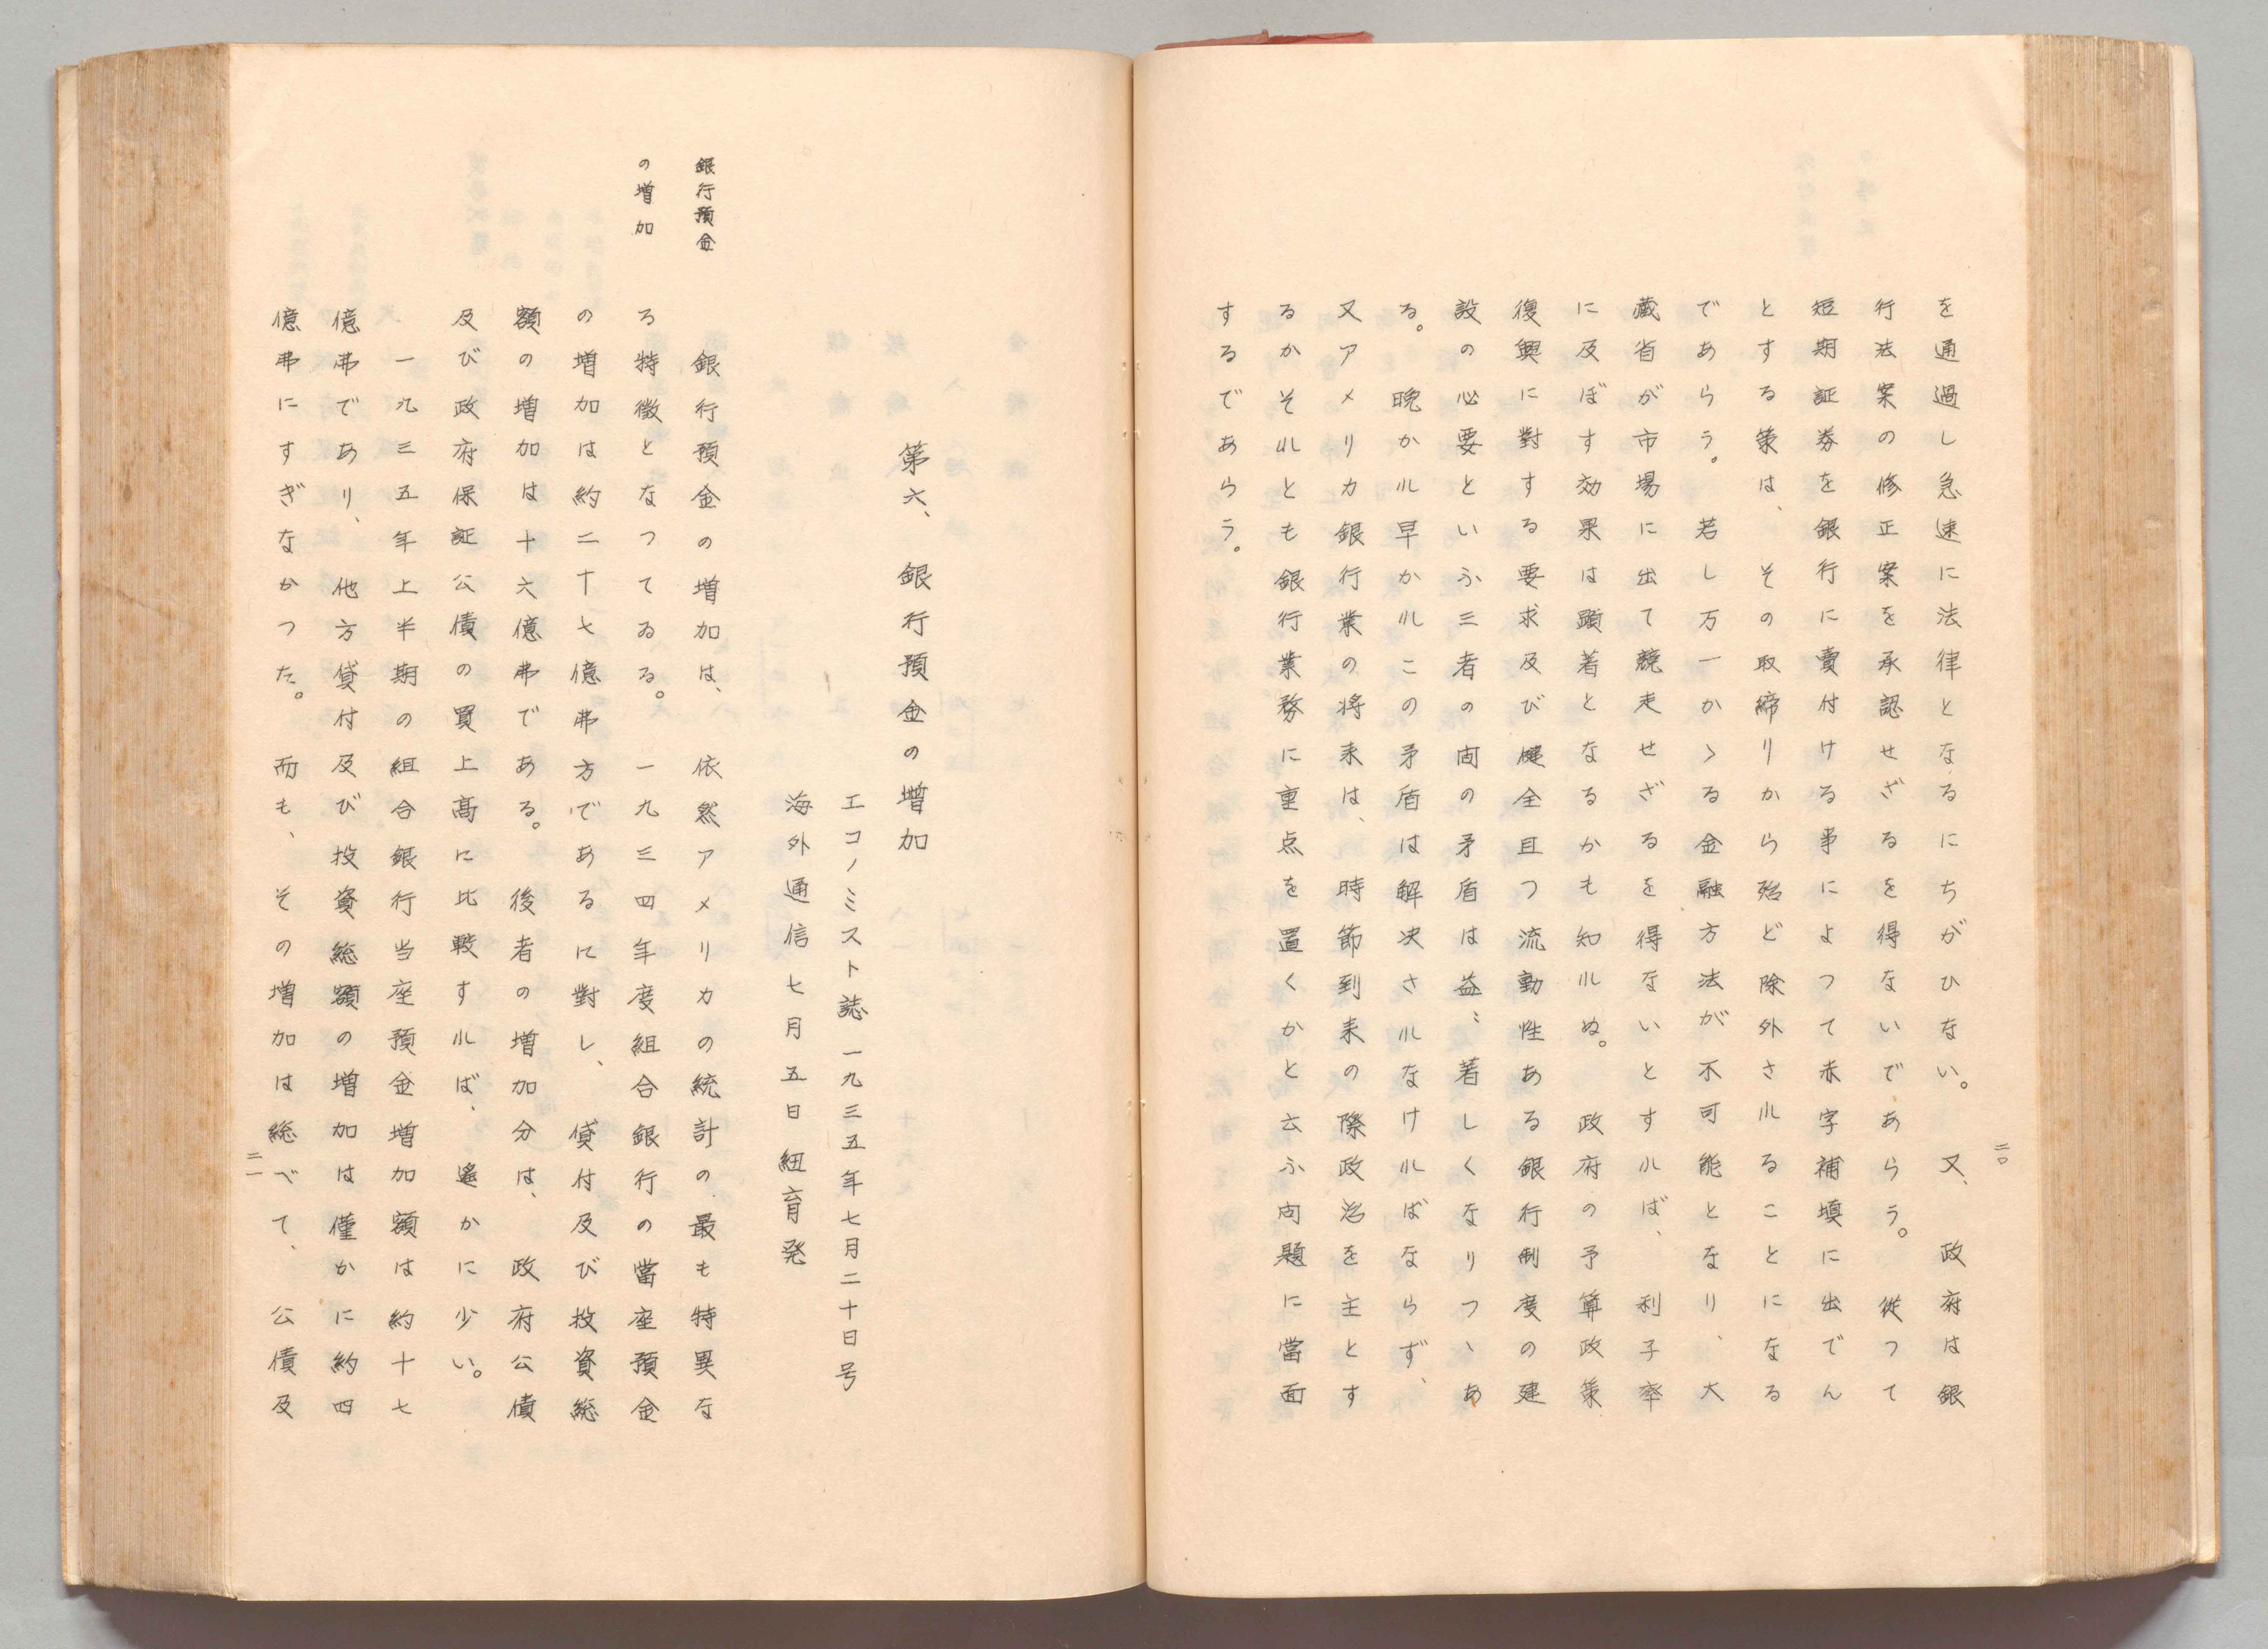 二〇
を通過し急速に法律となるにちがひない。又、政府は銀
行法案の修正案を承認せざるを得ないであらう。従つて
短期証券を銀行に賣付ける事によつて赤字補填に出でん
とする策は、その取締りから殆ど除外されることになる
であらう。若し万一かゝる金融方法が不可能となり、大
蔵省が市場に出て競走せざるを得ないとすれば、利子率
に及ぼす効果は顕著となるかも知れぬ。政府の予算政策
復興に對する要求及び健全且つ流動性ある銀行制度の建
設の必要といふ三者の间の矛盾は益〻著しくなりつゝあ
る。晩かれ早かれこの矛盾は解决されなければならず、
又アメリカ銀行業の将来は、時節到来の際政治を主とす
るかそれとも銀行業務に重点を置くかと云ふ问題に當面
するであらう。
第六、銀行預金の増加
エコノミスト誌 一九三五年七月二十日号
海外通信七月五日紐育発
銀行預金
の増加
銀行預金の増加は、依然アメリカの統計の最も特異な
る特徴となつてゐる。一九三四年度組合銀行の當座預金
の増加は約二十七億弗方であるに對し、貸付及び投資総
額の増加は十六億弗である。後者の増加分は、政府公債
及び政府保証公債の買上高に比較すれば、遙かに少い。
一九三五年上半期の組合銀行当座預金増加額は約十七
億弗であり、他方貸付及び投資総額の増加は僅かに約四
億弗にすぎなかつた。而も、その増加は総べて、公債及
二一